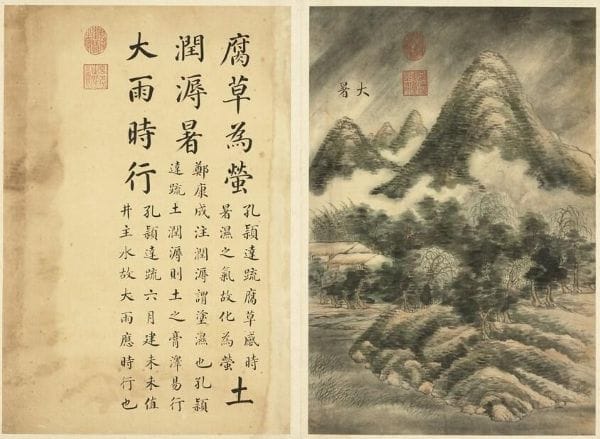 腐草為螢
孔頴達疏腐草感時
暑濕之氣故化為螢
土
潤溽暑
鄭康成注潤溽謂塗濕也孔頴
達疏土潤溽則土之膏澤易行
大雨時行
孔頴達疏六月建未未值
井主水故大雨應時行也
大暑